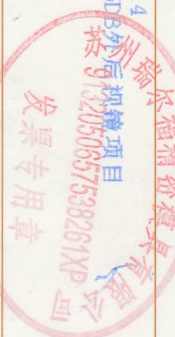 4
DB外后视镜项目
苏州瑞尔福精密模具有限公司
9132050657538261XP
发票专用章